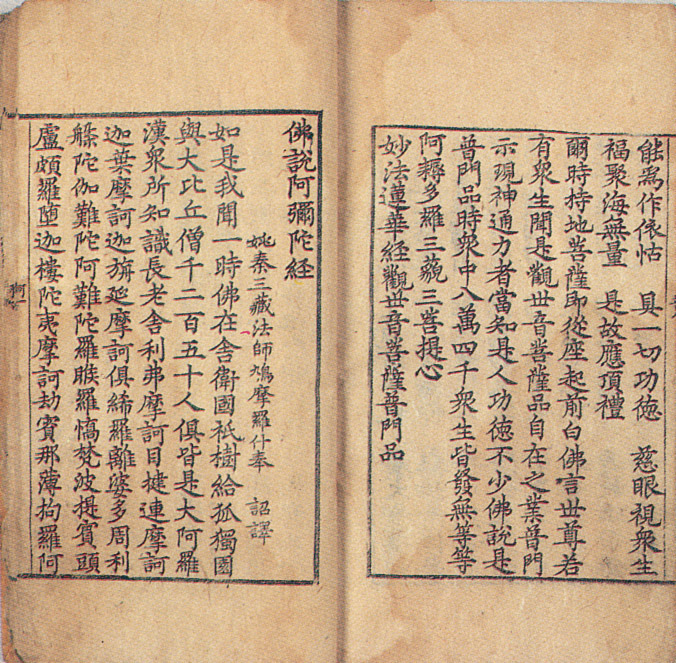 能為作依怙　具一切功德　慈眼視衆生
福聚海無量　是故應頂禮
爾時持地菩薩即從座起前白佛言世尊若
有衆生聞是觀世音菩薩品自在之業普門
示現神通力者當知是人功德不少佛說是
普門品時衆中八萬四千衆生皆發無等等
阿耨多羅三藐三菩提心
妙法蓮華經觀世音菩薩普門品
佛說阿彌陀経
姚秦三藏法師鳩摩羅什奉　詔譯
如是我聞一時佛在舍衛國祇樹給孤獨園
與大比丘僧千二百五十人俱皆是大阿羅
漢衆所知識長老舍利弗摩訶目揵連摩訶
迦葉摩訶迦旃延摩訶俱絺羅離婆多周利
槃陀伽難陀阿難陀羅睺羅憍梵波提賓頭
盧頗羅墮迦樓陀夷摩訶劫賓那薄拘羅阿